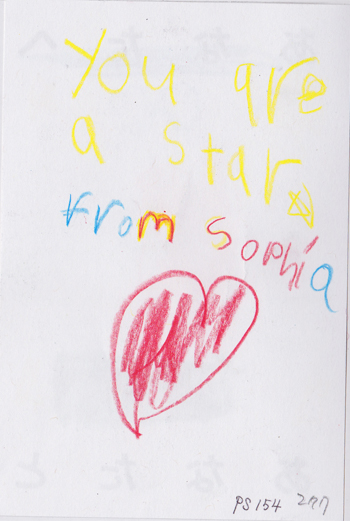 You are
a star
from Sophia
PS 154 277